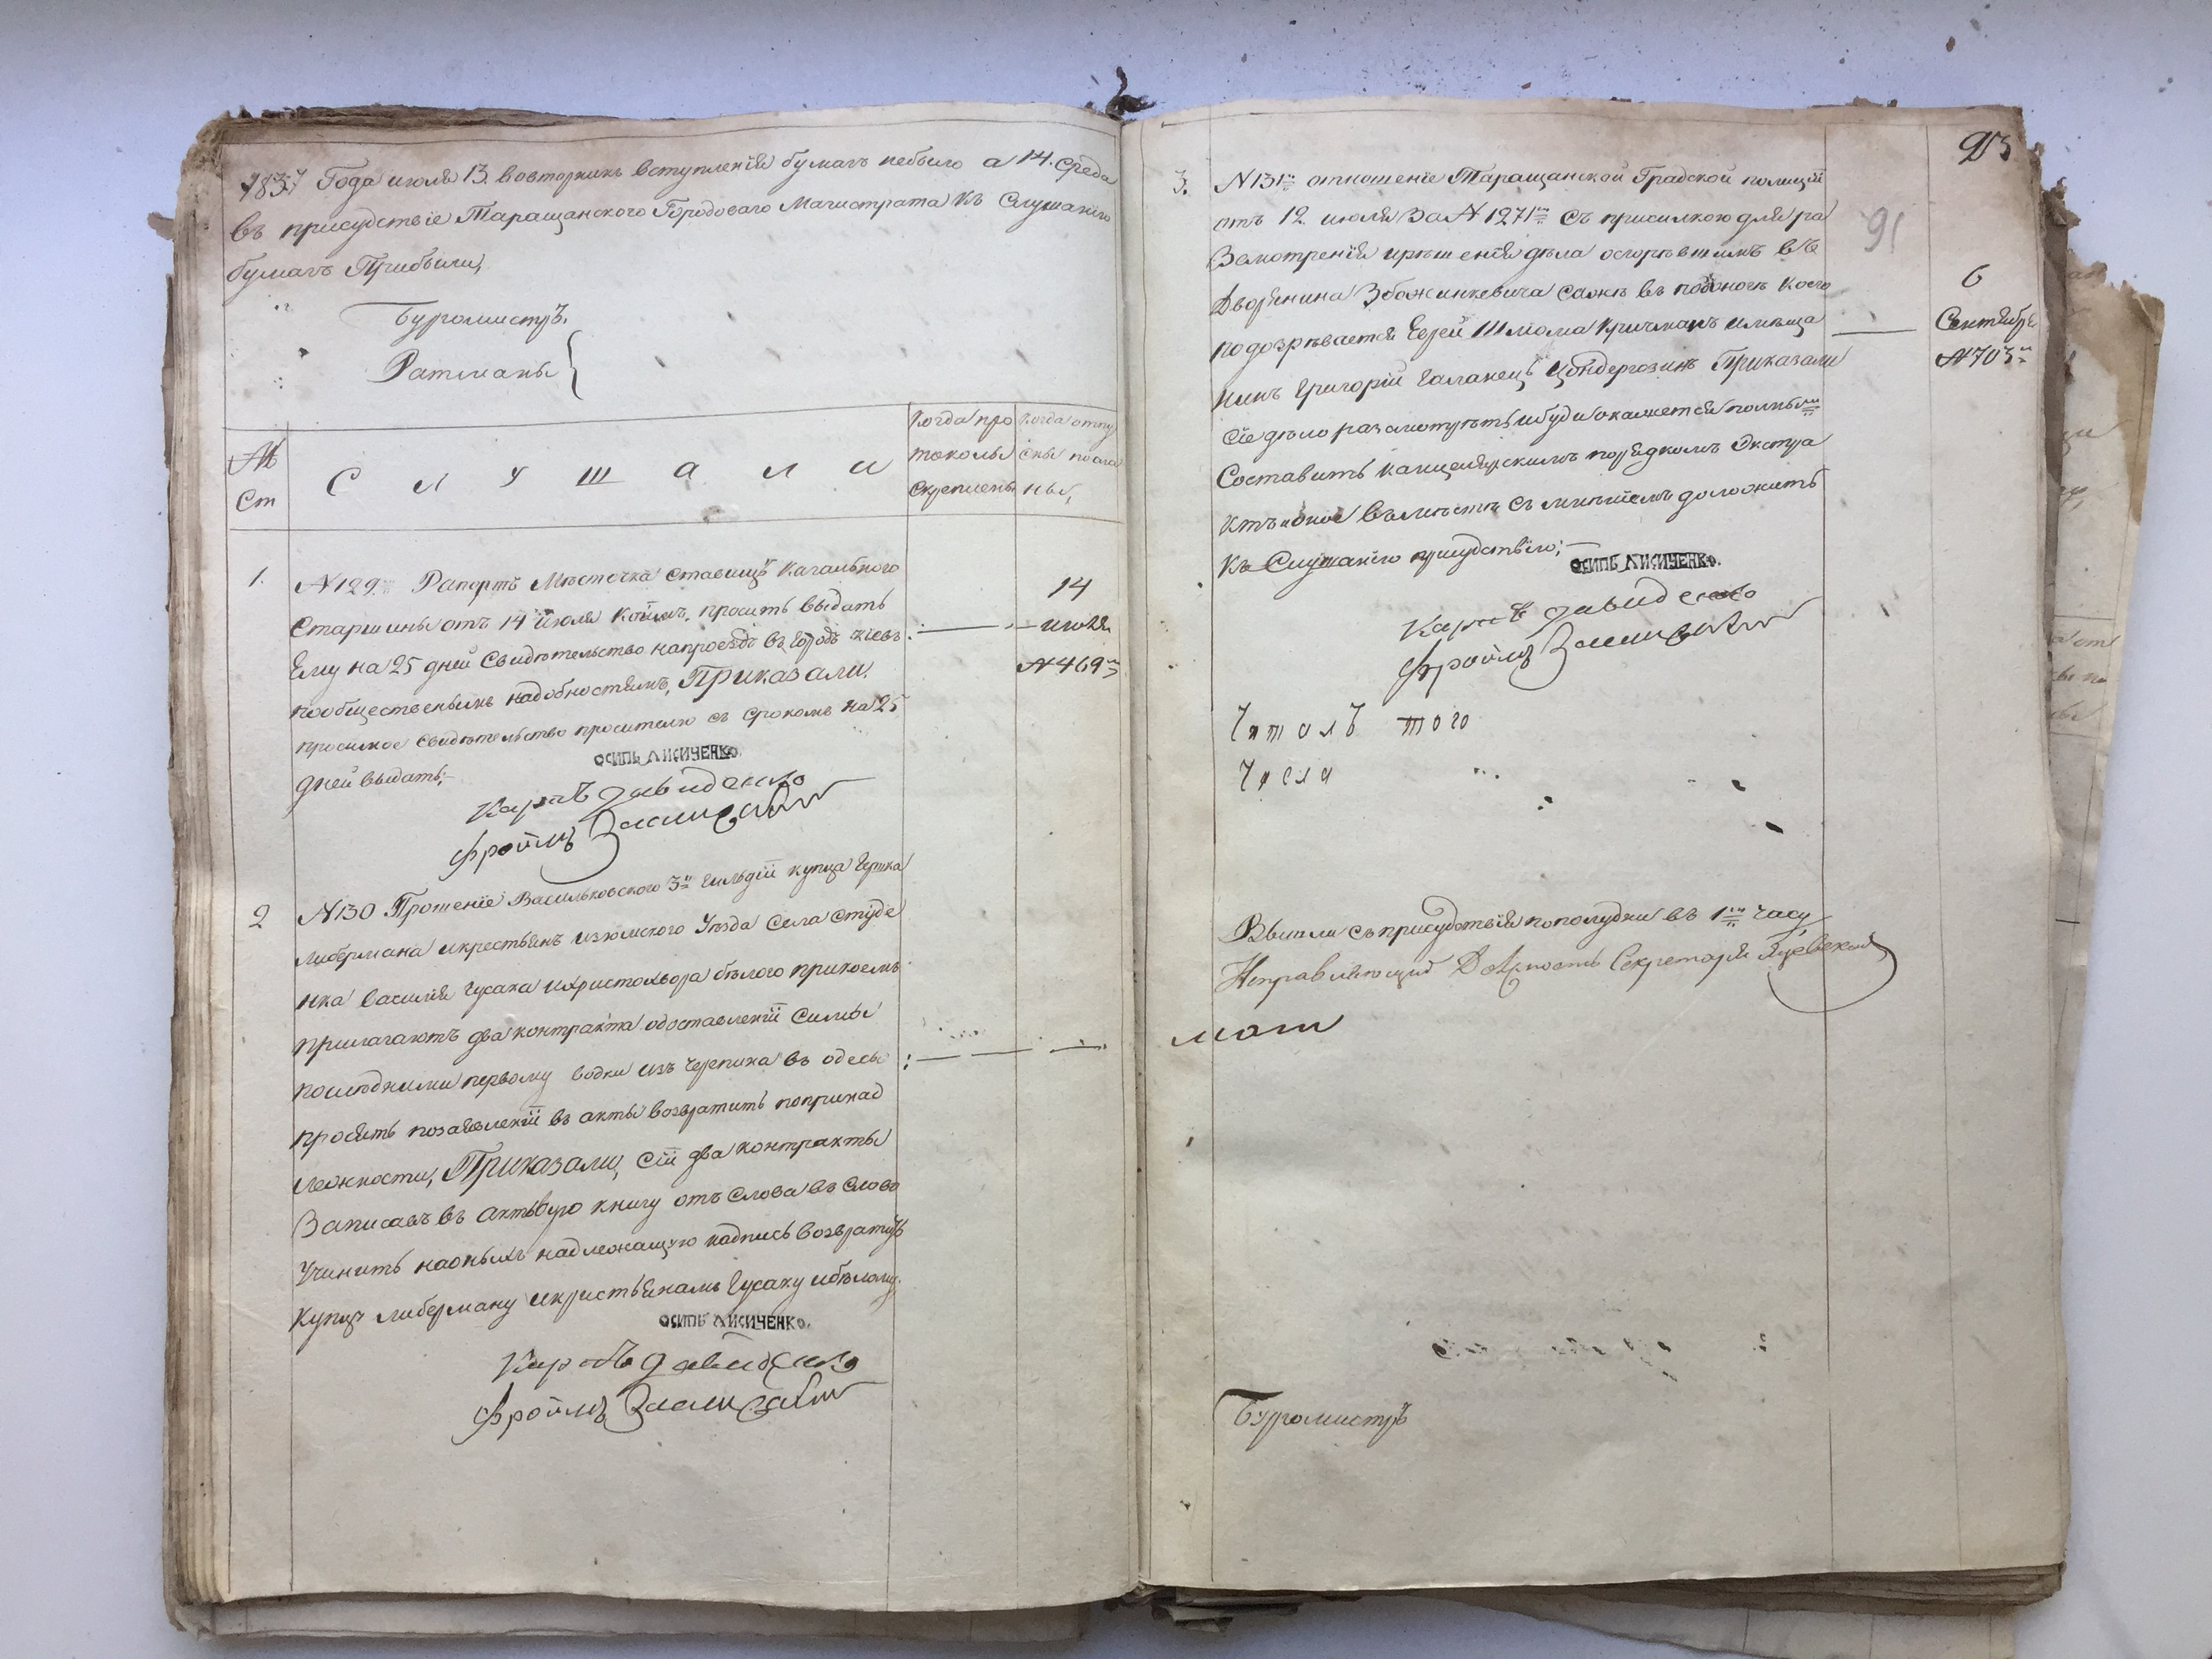 1837 Года июля 13. вовторникъ вступленія бумагъ небыло а 14. среда
въ присудствіе Таращанского Городоваго Магистрата къ Слушанію
бумагъ Прибыли,
Бургомистръ.
Ратманы
№
Ст
Слушали
Когда про
токолы
скреплены
Когда отпу
скы посла
ны,
1.
№129. Рапортъ Мѣстечка Ставищъ Кагального
Старшины отъ 14 июля коимъ, проситъ выдать
Ему на 25 дней Свидѣтельство напроездъ въ городъ Кіевъ
пообщественымъ надобностямъ, Приказали,
просимое Свидѣтельство просителю съ срокомъ на 25
дней выдать;
14
июля
№469
ОСИПЪ ЛИСИЧЕНКО.
Карпъ давиденко
Фроимъ
2
№130 Прошеніе Васильковского 3й Гильдіи купца Герика
Либермана икрестьянъ изюмского Уѣзда Села Студе
нка Василія Гусака ихристофора бѣлого прикоемъ
прилагаютъ два контракта одоставленіи Сими
последними первому водки изъ Черепина въ одесы
просятъ позаявленіи въ акты возвратить попринад
лежности, Приказали, Сіи два контракты
Записавъ въ актовую книгу отъ Слова въ Слово
Учинить наоныхъ надлежащую надпись возвратить
Купцу либерману икристьянамъ Гусаку ибѣлому.
ОСИПЪ ЛИСИЧЕНКО.
Карпъ давиденко
Фроимъ
203
91
3.
№131 отношеніе Таращанской Градской полиціи
отъ 12 июля За№ 1271 съ присилкою для ра
Зсмотренія ирѣшенія дѣла осгорѣвшимъ въ
Дворянина Збожинкевича Сажѣ въ подконогъ коего
подозрѣвается Еврей Шліома Кричманъ имѣща
нинъ Григорій Галанецъ Приказали
Сіе дѣло разсмотрѣть ибуди окажется полнымъ
Составить канцелярскимъ порядкомъ Экстра
ктъ ионое вьместѣ съ мнѣніемъ доложить
къ Слушанію присудствію;
6
Сентября
№703
ОСИПЪ ЛИСИЧЕНКО.
Карпъ давиденко
Фроимъ
Читалъ того
Числа
Вышли съприсудствія пополудни въ 1мъ часу
Исправляющий Должность Секретаря
Бургомистръ